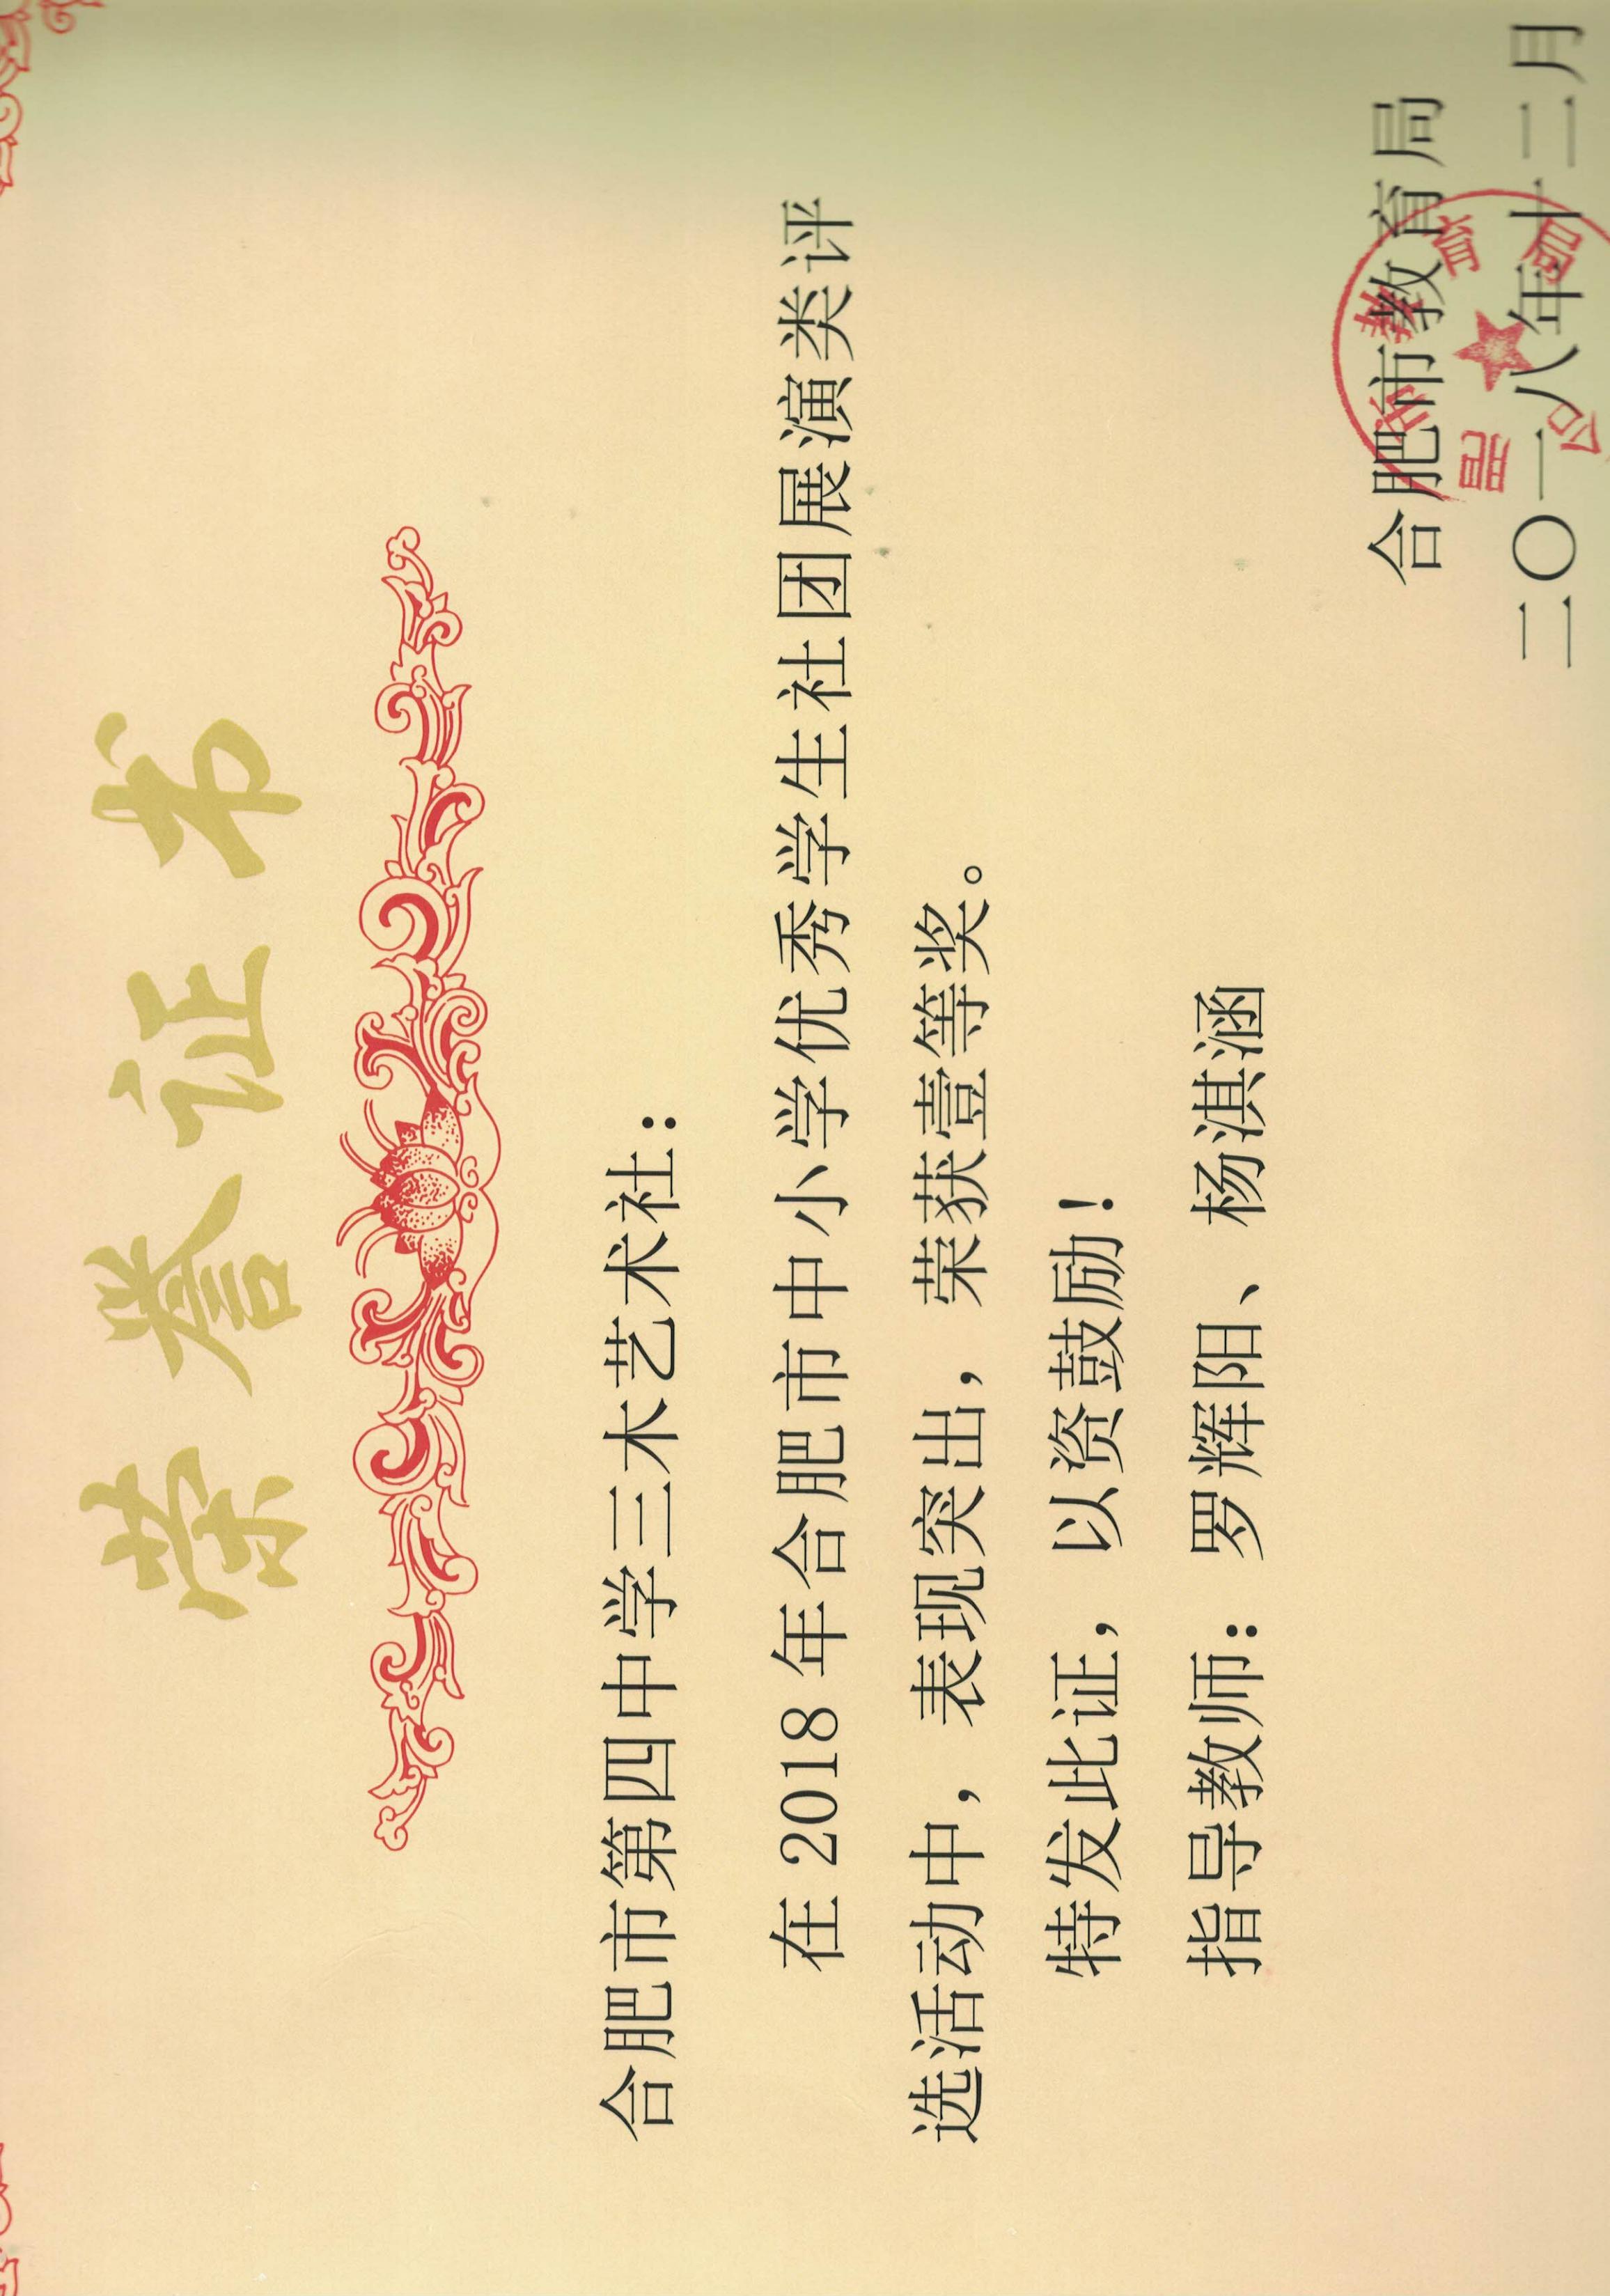 荣誉证书
合肥市第四中学三木艺术社：
在 2018 年合肥市中小学优秀学生社团展演类评
选活动中，表现突出，荣获壹等奖。
特发此证，以资鼓励！
指导教师：罗辉阳、杨淇涵
合肥市教育局
二〇一八年十二月
肥市教育局